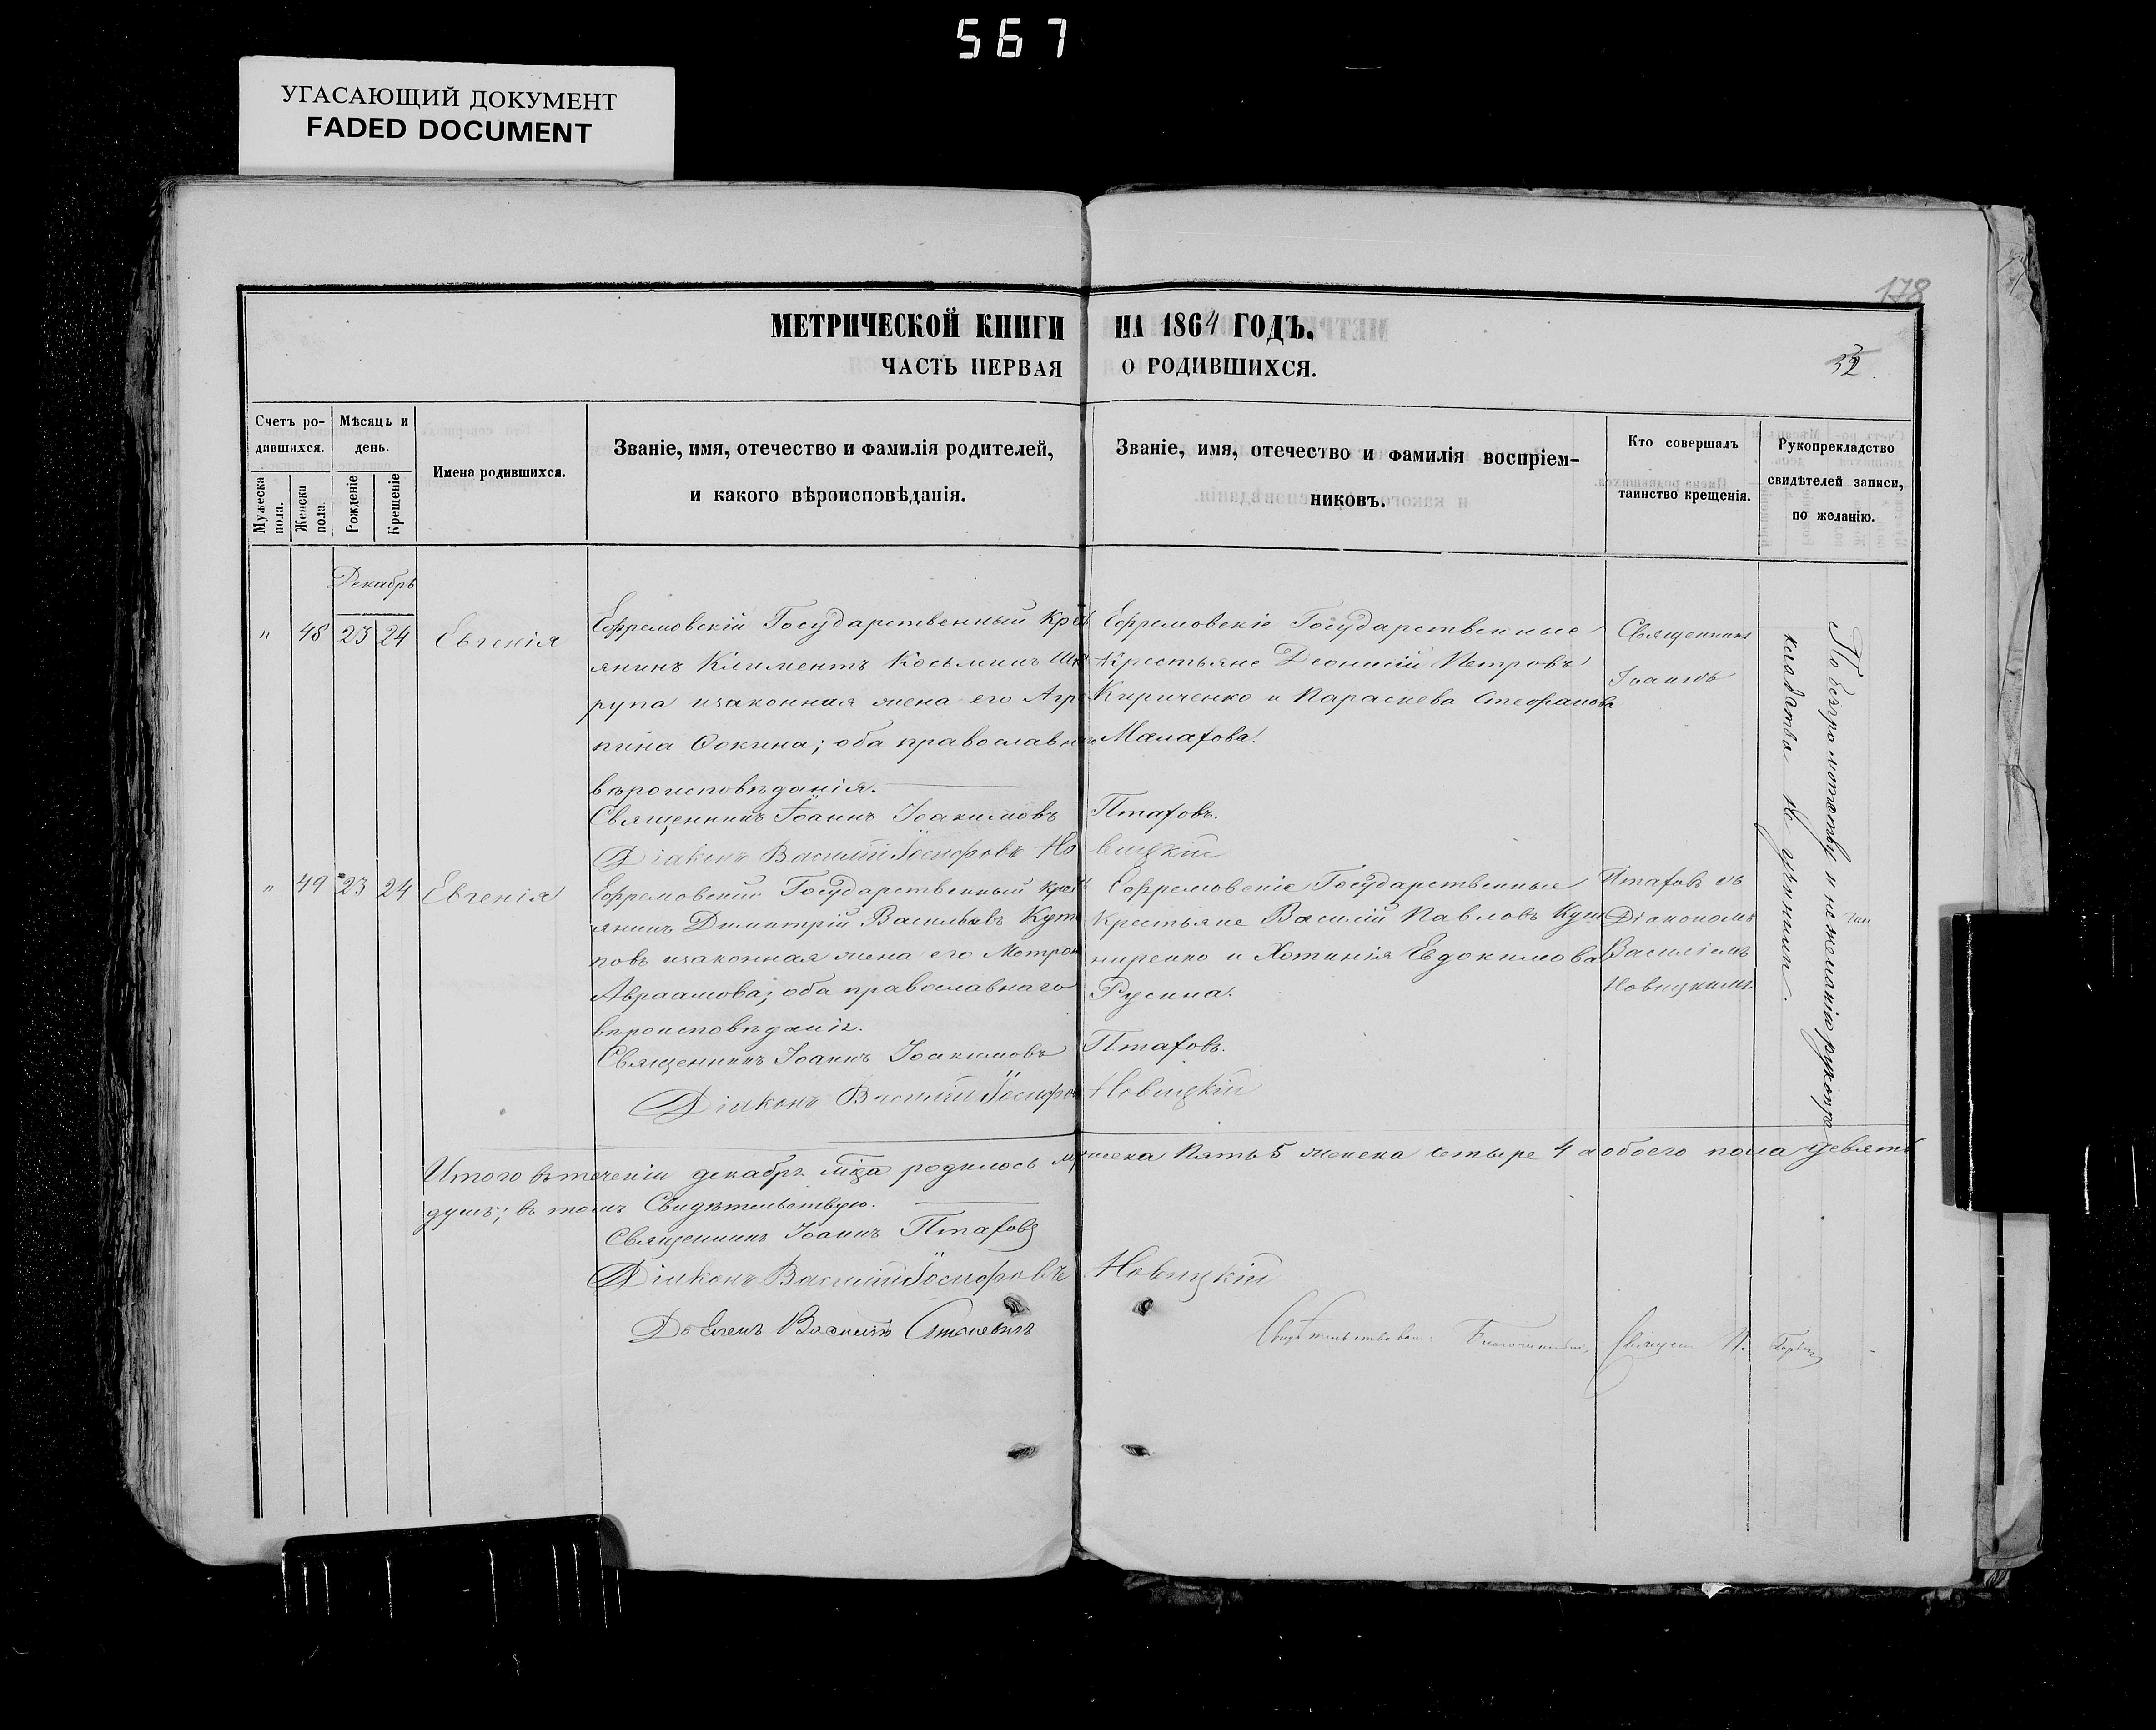 567
УГАСАЮЩИЙ ДОКУМЕНТ
FADED DOCUMENT
178
МЕТРИЧЕСКОЙ КНИГИ НА 1864 ГОДЪ.
ЧАСТЬ ПЕРВАЯ О РОДИВШИХСЯ.
32.
Счетъ ро-
дившихся.
Мужеска
пола.
Женска
пола.
Мѣсяцъ и
день.
Рожденіе
Крещеніе
Имена родившихся.
Званіе, имя, отечество и фамилія родителей,
и какого вѣроисповѣданія.
Званіе, имя, отечество и фамилія воспріем-
никовъ.
Кто совершалъ
таинство крещенія.
Рукопрекладство
свидѣтелей записи,
по желанію.
Декабрь
" 48 23 24 Евгенія
Ефремовскій Государственный Крест
янинъ Климентъ Косьминъ
рупа изаконная жена его Агр
пина Фокина; оба православн
вѣроисповѣданія.
Священникъ Іоаннъ Іоакимовъ Птаховъ.
Діаконъ Василій Іосифовъ Новицкій
Ефремовскіе Государственные
Крестьяне Діонисій Петровъ
Кириченко и Параскева Стефанова
Малахова.
Священникъ
Іоаннъ
Птаховъ съ
Діакономъ
Василіемъ
Новицкимъ.
По безграмотству и нежеланію рукопри
кладства не учинили.
" 49 23 24 Евгенія
Ефремовский Государственный крест
янинъ Димитрій Васильевъ Куте
повъ изаконная жена его Матрон
Авраамова; оба православнаго
вѣроисповѣданія.
Священникъ Іоаннъ Іоакимовъ Птаховъ.
Діаконъ Василій Іосифов Новицкій
Ефремовскіе Государственные
Крестьяне Василій Павловъ Куш
ниренко и Хотинія Евдокимова
Русина.
Итого втеченіи декабря мца родилось мужеска пять 5 женска четыре 4 а обоего пола девять
душъ; въ томъ Свидѣтельствую.
Священникъ Іоаннъ Птаховъ
Діаконъ Василій Іосифовъ Новицкій
Василій
Свидѣтельствовалъ Благочинный, Священ